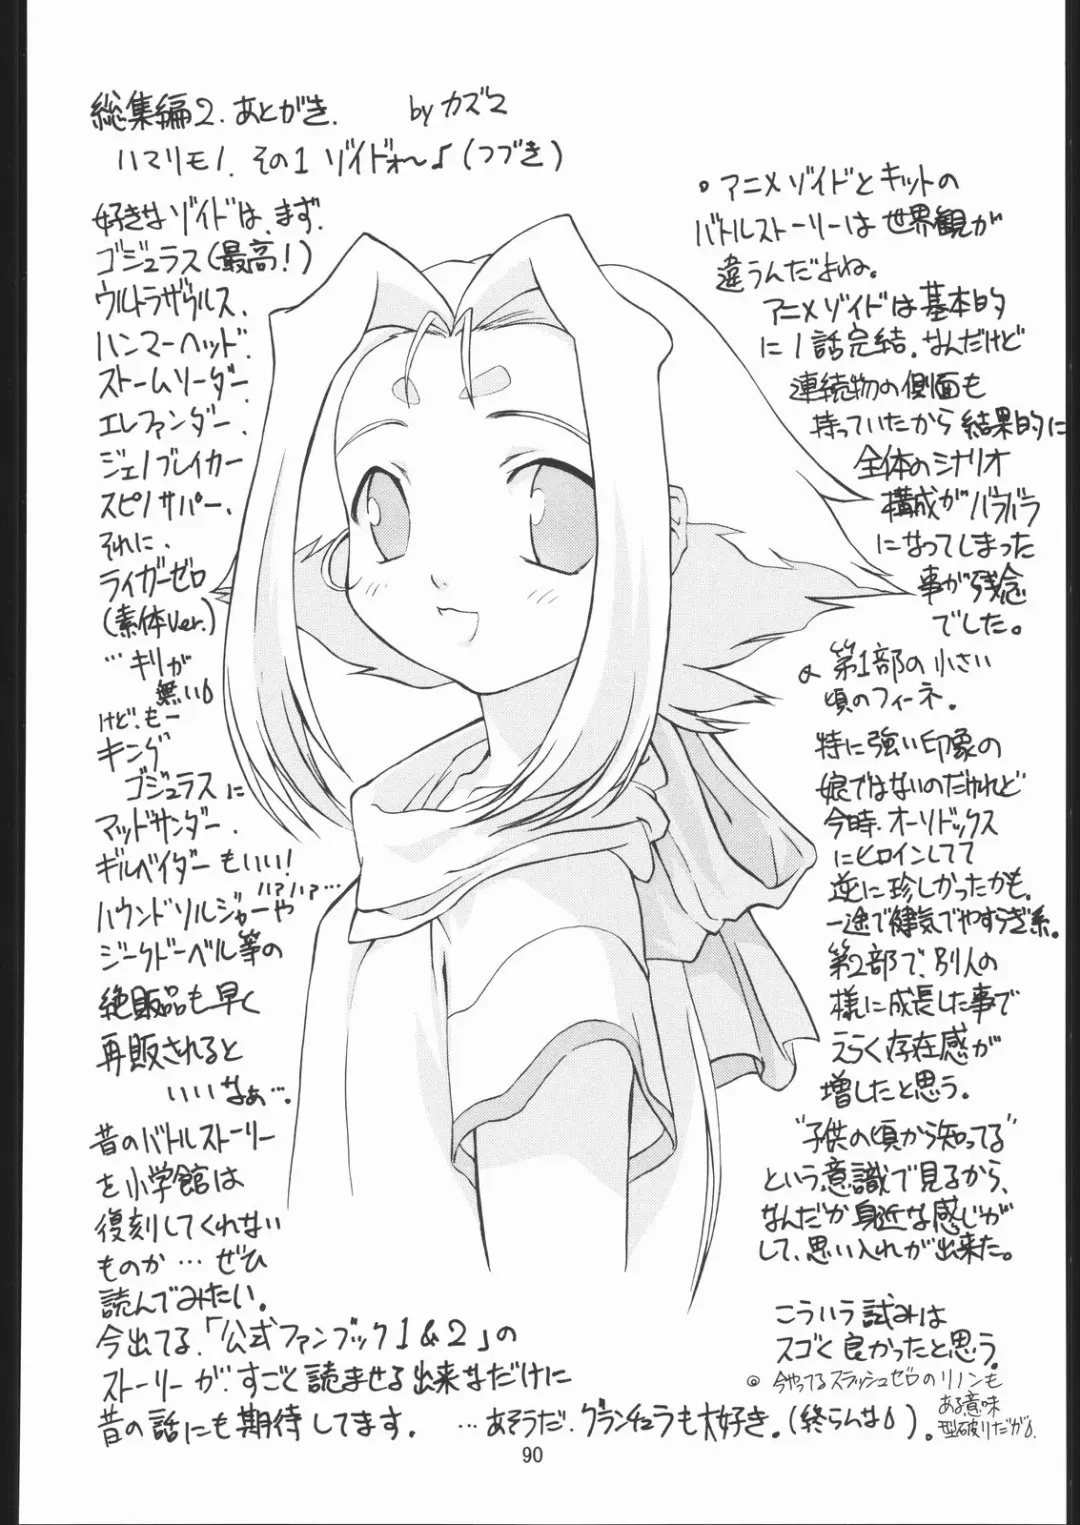 総集編2.あとがき. by カズマ
ハマリモノ. その1 ゾイドォ〜♪(つづき)
好きなゾイドは、まず.
ゴジュラス(最高!)
ウルトラザウルス.
ハンマーヘッド.
ストームソーダー.
エレファンダー.
ジェノブレイカー
スピノサパー.
それに.
ライガーゼロ
(素体Ver.)
…キリが
無い
けど.もー
キング
ゴジュラスに
マッドサンダー.
ギルベイダーもいい!
ハァハァ…
ハウンドソルジャーや
ジークドーベル等の
絶版品も早く
再販されると
いいなぁ….
昔のバトルストーリー
を小学館は
復刻してくれない
ものか…ぜひ
読んでみたい。
今出てる.「公式ファンブック1&2」の
ストーリーが.すごく読ませる出来なだけに
昔の話にも期待してます. …あそうだ.グランチュラも大好き.(終らんな)。
○アニメゾイドとキットの
バトルストーリーは世界観が
違うんだよね。
アニメゾイドは基本的
に1話完結.なんだけど
連続物の側面も
持っていたから結果的に
全体のシナリオ
構成がバラバラ
になってしまった
事が残念
でした。
第1部の小さい
頃のフィーネ.
特に強い印象の
娘ではないのだけれど
今時.オーソドックス
にヒロインしてて
逆に珍しかったかも.
一途で健気でやすらぎ系.
第2部で、別人の
様に成長した事で
えらく存在感が
増したと思う。
"子供の頃から知ってる"
という意識で見るから、
なんだか身近な感じが
して、思い入れが出来た。
こういう試みは
スゴく良かったと思う。
◎今やってるスラッシュゼロのリノンも
ある意味
型破りだが.
90